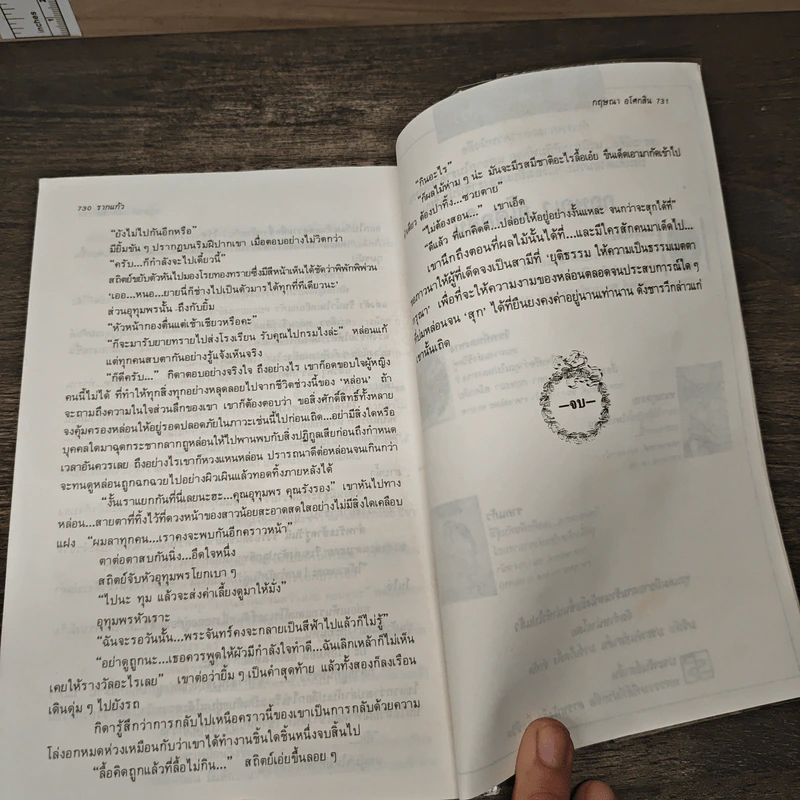 inches
730 รากแก้ว
“ยังไม่ไปกันอีกหรือ”
มียิ้มขัน ๆ ปรากฏบนริมฝีปากเขา เมื่อตอบอย่างไม่วิตกว่า
“ครับ...ก็กำลังจะไปเดี๋ยวนี้”
สถิตย์ขยับตัวหันไปมองโรยทองทรายซึ่งมีสีหน้าเห็นได้ชัดว่าพิพักพิพ่วน
‘เออ...หนอ...ยายนี่ก็ช่างไปเป็นตัวมารได้ทุกที่ทีเดียวนะ’
ส่วนอุทุมพรนั้น ถึงกับยิ้ม
“หัวหน้ากองตื่นแต่เช้าเชียวหรือคะ”
“ก็จะมารับยายทรายไปส่งโรงเรียน รับคุณไปกรมไงล่ะ” หล่อนแก้
แต่ทุกคนสบตากันอย่างรู้แจ้งเห็นจริง
“ก็ดีครับ...” กิดาตอบอย่างจริงใจ ถึงอย่างไร เขาก็อดขอบใจผู้หญิง
คนนี้ไม่ได้ ที่ทำให้ทุกสิ่งทุกอย่างหลุดลอยไปจากชีวิตช่วงนี้ของ ‘หล่อน’ ถ้า
จะถามถึงความในใจส่วนลึกของเขา เขาก็ต้องตอบว่า ขอสิ่งศักดิ์สิทธิ์ทั้งหลาย
จงคุ้มครองหล่อนให้อยู่รอดปลอดภัยในภาวะเช่นนี้ไปก่อนเถิด...อย่ามีสิ่งใดหรือ
บุคคลใดมาฉุดกระชากลากถูหล่อนให้ไปพานพบกับสิ่งปฏิกูลเสียก่อนถึงกำหนด
เวลาอันควรเลย ถึงอย่างไรเขาก็หวงแหนหล่อน ปรารถนาดีต่อหล่อนเกินกว่า
จะทนดูหล่อนถูกฉกฉวยไปอย่างผิวเผินแล้วทอดทิ้งภายหลังได้
“งั้นเราแยกกันที่นี่เลยนะฮะ...คุณอุทุมพร คุณรังรอง” เขาหันไปทาง
หล่อน...สายตาที่ทิ้งไว้ที่ดวงหน้าของสาวน้อยสะอาดสดใสอย่างไม่มีสิ่งใดเคลือบ
แฝง “ผมลาทุกคน...เราคงจะพบกันอีกคราวหน้า”
ตาต่อตาสบกันนิ่ง...อึดใจหนึ่ง
สถิตย์จับหัวอุทุมพรโยกเบา ๆ
“ไปนะ ทุม แล้วจะส่งค่าเลี้ยงดูมาให้มั่ง”
อุทุมพรหัวเราะ
“ฉันจะรอวันนั้น...พระจันทร์คงจะกลายเป็นสีฟ้าไปแล้วก็ไม่รู้”
“อย่าดูถูกนะ...เธอควรพูดให้ผัวมีกำลังใจทำดี...ฉันเลิกเหล้าก็ไม่เห็น
เคยให้รางวัลอะไรเลย” เขาต่อว่ายิ้ม ๆ เป็นคำสุดท้าย แล้วทั้งสองก็ลงเรือน
เดินดุ่ม ๆ ไปยังรถ
กิดารู้สึกว่าการกลับไปเหนือคราวนี้ของเขาเป็นการกลับด้วยความ
โล่งอกหมดห่วงเหมือนกับว่าเขาได้ทำงานชิ้นใดชิ้นหนึ่งจบสิ้นไป
“ลื้อคิดถูกแล้วที่ลื้อไม่กิน...” สถิตย์เอ่ยขึ้นลอย ๆ
กฤษณา อโศกสิน 731
“กินอะไร”
“ก็ผลไม้ห่าม ๆ น่ะ มันจะมีรสมีชาติอะไรลื้อเอ๋ย ขืนเด็ดเอามากัดเข้าไป
ต้องปาทิ้ง...ซวยตาย”
“ไม่ต้องสอน...” เขาเอ็ด
“ดีแล้ว ที่แกคิดดี...ปล่อยให้อยู่อย่างงั้นแหละ จนกว่าจะสุกได้ที่”
เขานึกถึงตอนที่ผลไม้นั้นได้ที่...และมีใครสักคนมาเด็ดไป...
ภาวนาให้ผู้ที่เด็ดจงเป็นสามีที่ ‘ยุติธรรม ให้ความเป็นธรรมเมตตา
กรุณา’ เพื่อที่จะให้ความงามของหล่อนตลอดจนประสบการณ์ใด ๆ
ที่บ่มหล่อนจน ‘สุก’ ได้ที่ยืนยงคงค่าอยู่นานเท่านาน ดังชารวีกล่าวแก่
เขานั้นเถิด
—จบ—